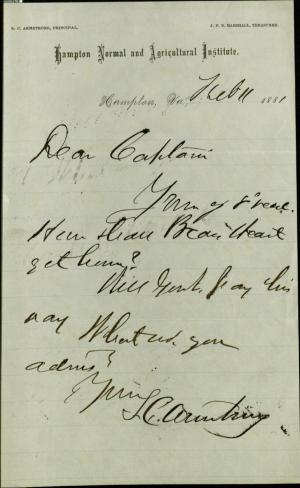 S. C. ARMSTRONG, PRINCIPAL. J. F. B. MARSHALL, TREASURER.
Hampton Normal and Agricultural Institute.
Hampton, Va., Feb 11 1881
Dear Captain
Yours of 8" recd.
How shall Bear's Heart
get home?
Will Govt. pay his
way What wd. you
advise?
Yours
S. C. Armstrong